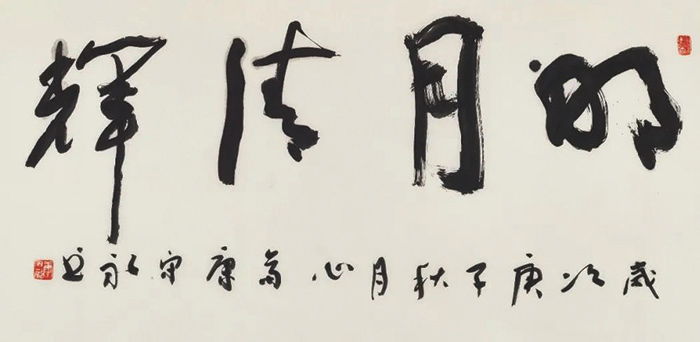 明月清輝
歲次庚子秋月心斋康守永书